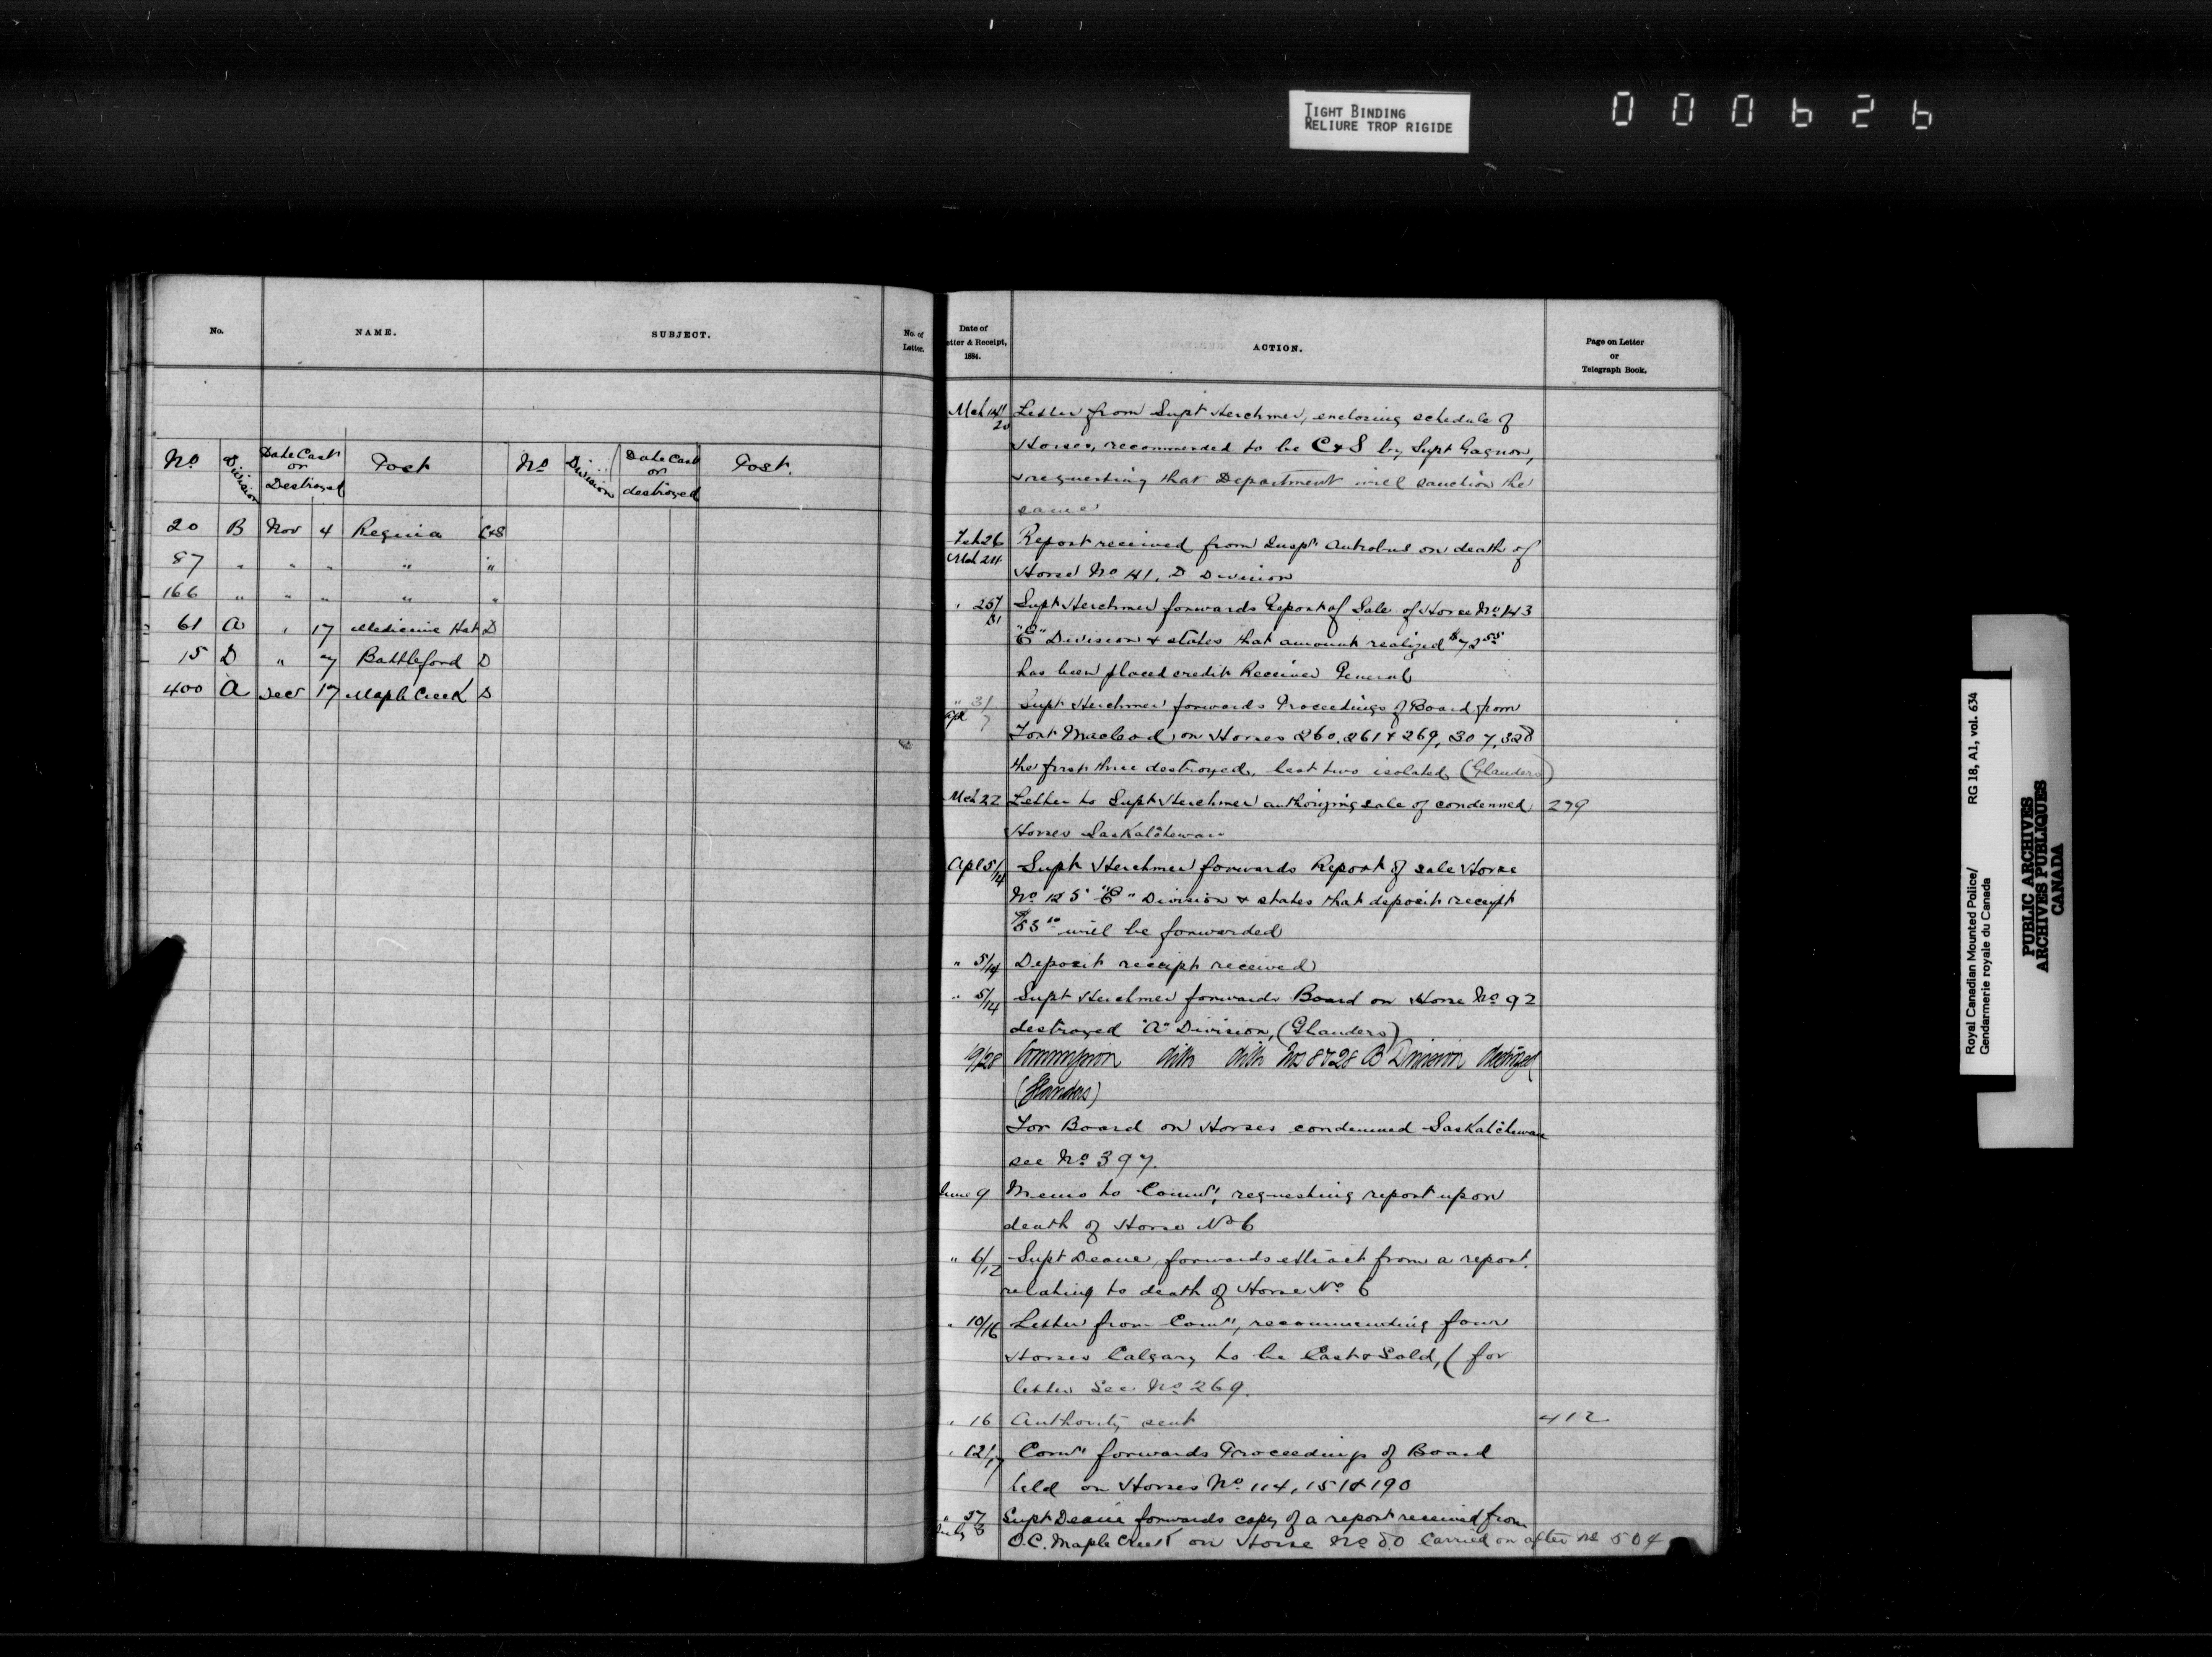 TIGHT BINDING
RELIURE TROP RIGIDE
000626
No.
NAME.
SUBJECT.
No. of
Letter.
No Division Date Cast or Destroyed Post No Division Date Cast or destroyed Post.
20 B Nov 4 Regina C&S
87 " " " " "
166 " " " " "
61 A " 17 Medicine Hat D
15 D " 7 Battleford D
400 A Dec 17 Maple Creek D
Date of
etter & Receipt,
1884.
ACTION.
Page on Letter
or
Telegraph Book.
Mch 14/20 Letter from Supt Herchmer, enclosing schedule of
Horses, recommended to be C&S by Supt Gagnon,
& requesting that Department will sanction the
same
Feb 26 Report received from Inspr Antrobus on death of
Mch 24 Horse No 41, D Division
" 25/31 Supt Herchmer forwards Report of Sale of Horse No 143
"E" Division & states that amount realized $72 55
has been placed credit Receiver General
" 31 Supt Herchmer forwards Proceedings of Board from
Apl 7 Fort Macleod, on Horses 260, 261 & 269, 307, 328
the first three destroyed, last two isolated (Glanders)
Mch 22 Letter to Supt Herchmer authorizing sale of condemned 279
Horses Saskatchewan
Apl 5/14 Supt Herchmer forwards Report of sale Horse
No 125 "E" Division & states that deposit receipt
will be forwarded
" 5/14 Deposit receipt received
" 5/14 Supt Herchmer forwards Board on Horse No 92
destroyed "A" Division, (Glanders)
19/28 Commission ditto ditto Nos 8 & 28 B Division destroyed
(Glanders)
For Board on Horses condemned Saskatchewan
see No 397.
June 9 Memo to Commr, requesting report upon
death of Horse No 6
" 6/12 Supt Deane, forwards extract from a report,
relating to death of Horse No 6
" 10/16 Letter from Comr, recommending four
Horses Calgary to be Cast & Sold, (for
letter See No 269.
" 16 Authority sent 412
" 12/17 Comr forwards Proceedings of Board
held on Horses No 114, 151 & 190
" 27 Supt Deane forwards copy of a report received from
July 3 O.C. Maple Creek on Horse No 80 Carried on after No 504
Royal Canadian Mounted Police/ RG 18, A1, vol. 634
Gendarmerie royale du Canada
PUBLIC ARCHIVES
ARCHIVES PUBLIQUES
CANADA